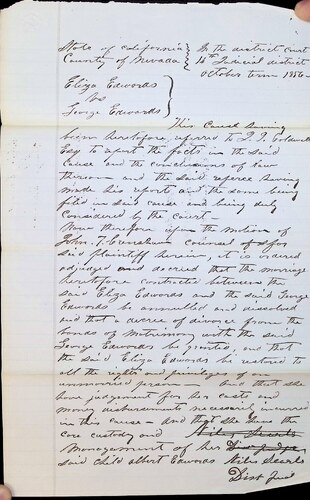 State of California } In the district court
County of Nevada } 14th Judicial district
October term 1856
Eliza Edwords
vs
George Edwords
This Cause having
been heretofore referred to
Esq to report the facts in the said
cause and the conclusions of law
thereon and the said referee having
made his report and the same being
filed in said cause and being duly
considered by the court—
Now therefore upon the motion of
John T. Crenshaw counsel for
said plaintiff herein, it is ordered
adjudged and decreed that the marriage
heretofore contracted between the
said Eliza Edwords and the said George
Edwords be annulled and dissolved
and that a decree of divorce from the
bonds of Matrimony with the said
George Edwords be granted, and that
the said Eliza Edwords be restored to
all the rights and privileges of an
unmarried person— And that she
have judgement for her costs and
money disbursements necessarily incurred
in this cause— And that she have the
care custody and Niles Searls
Management of her Dist Judge
said child Albert Edwords Niles Searls
Dist Jud